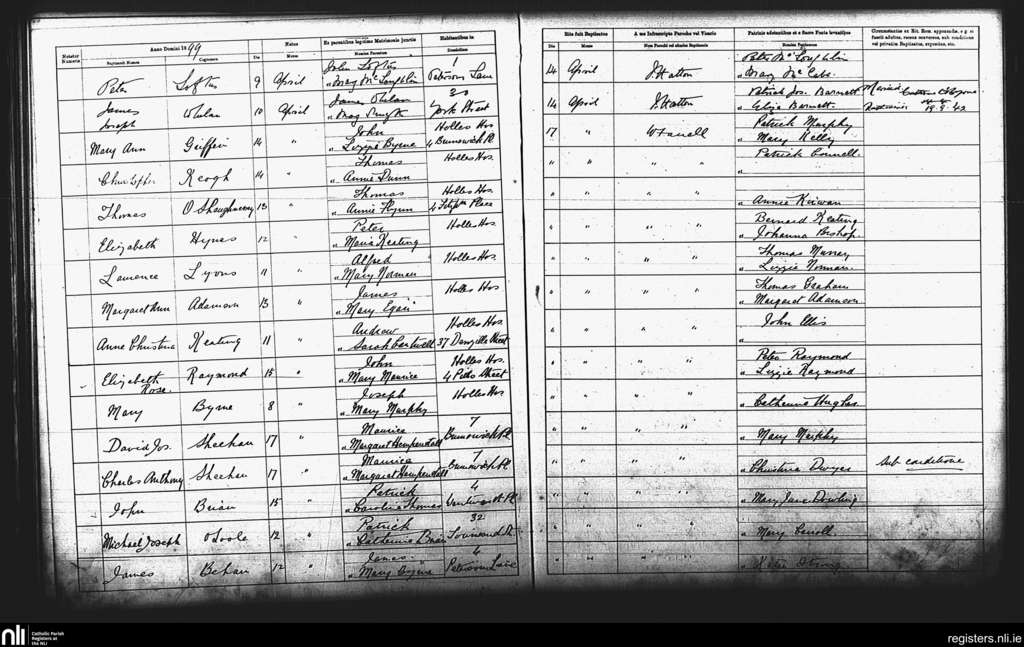 Anno Domini 1899
Notatur Numeris
Baptizandi Nomen
Cognomen
Die
Natus
Mense
Ex parentibus legitimo Matrimonio junctis
Nomina Parentum
Habitantibus in
Domicilium
Peter Loftus 9 April John Loftus 1
" Mary McLoughlin Petersons Lane
James Joseph Whelan 10 April James Whelan 20
" Mary Smyth York Street
Mary Ann Griffin 14 " John Holles Hos
" Lizzie Byrne 4 Brunswick Pl
Christopher Keogh 14 " Thomas Holles Hos.
" Annie Dunn
Thomas O'Shaughnessy 13 " Thomas Holles Hos.
" Annie Flynn 4 Place
Elizabeth Hynes 12 " Peter Holles Hos.
" Maria Keating
Laurence Lyons 11 " Alfred Holles Hos.
" Mary Norman
Margaret Ann Adamson 13 " James Holles Hos
" Mary Egan
Anne Christina Keating 11 " Andrew Holles Hos.
" Sarah Cantwell 37 Denzille Street
Elizabeth Rose Raymond 15 " John Holles Hos.
" Mary Maurice 4 Street
Mary Byrne 8 " Joseph Holles Hos
" Mary Murphy
David Jos. Sheehan 17 " Maurice 7
" Margaret Hempenstall Brunswick Pl
Charles Anthony Sheehan 17 " Maurice 7
" Margaret Hempenstall Brunswick Pl
John Brian 15 " Patrick 4
" Caroline Thomas Wentworth Pl
Michael Joseph O'Toole 12 " Patrick 32
" Catherine Townsend St
James Behan 12 " James 4
" Mary Byrne Petersons Lane
Rite fuit Baptizatus
Die
Mense
A me Infrascripto Parocho vel Vicario
Nom Parochi vel ejusdem Baptizantis
Patrinis adstantibus et e Sacro Fonte levantibus
Nomina Patrinorum
Circumstantiae ex Rit. Rom. apponendae, e g si fuerit adultus, rursus conversus, sub conditione vel privatim Baptizatus, expositus, etc.
14 April J. Hatton Peter McLoughlin
" Mary McCabe
14 April J. Hatton Patrick Jos. Barnett Married
" Eliza Barnett 19.9.42
17 " W Farrell Patrick Murphy
" Mary Kelly
" " " " Patrick Connell
"
" " " "
" Annie Kirwan
" " " " Bernard Keating
" Johanna Bishop.
" " " " Thomas Murray
" Lizzie Norman.
" " " " Thomas Graham
" Margaret Adamson
" " " " John Ellis
"
" " " " Peter Raymond
" Lizzie Raymond
" " " "
" Catherine Hughes
" " " "
" Mary Murphy
" " " "
" Christina Dwyer sub conditione
" " " "
" Mary Jane Dowling
" " " "
" Mary Carroll
" " " "
" Katie
nli
Catholic Parish
Registers at
the NLI
registers.nli.ie